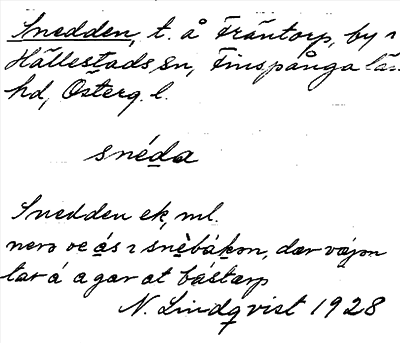 Snedden, t. å Fräntorp, by i
Hällestads sn, Finspånga län
hd, Österg. l.
snéda
Snedden ek, ml.
nero ve ás ı snèbákon, dær væjon
tar á a gar at bástarp
N. Lindqvist 1928